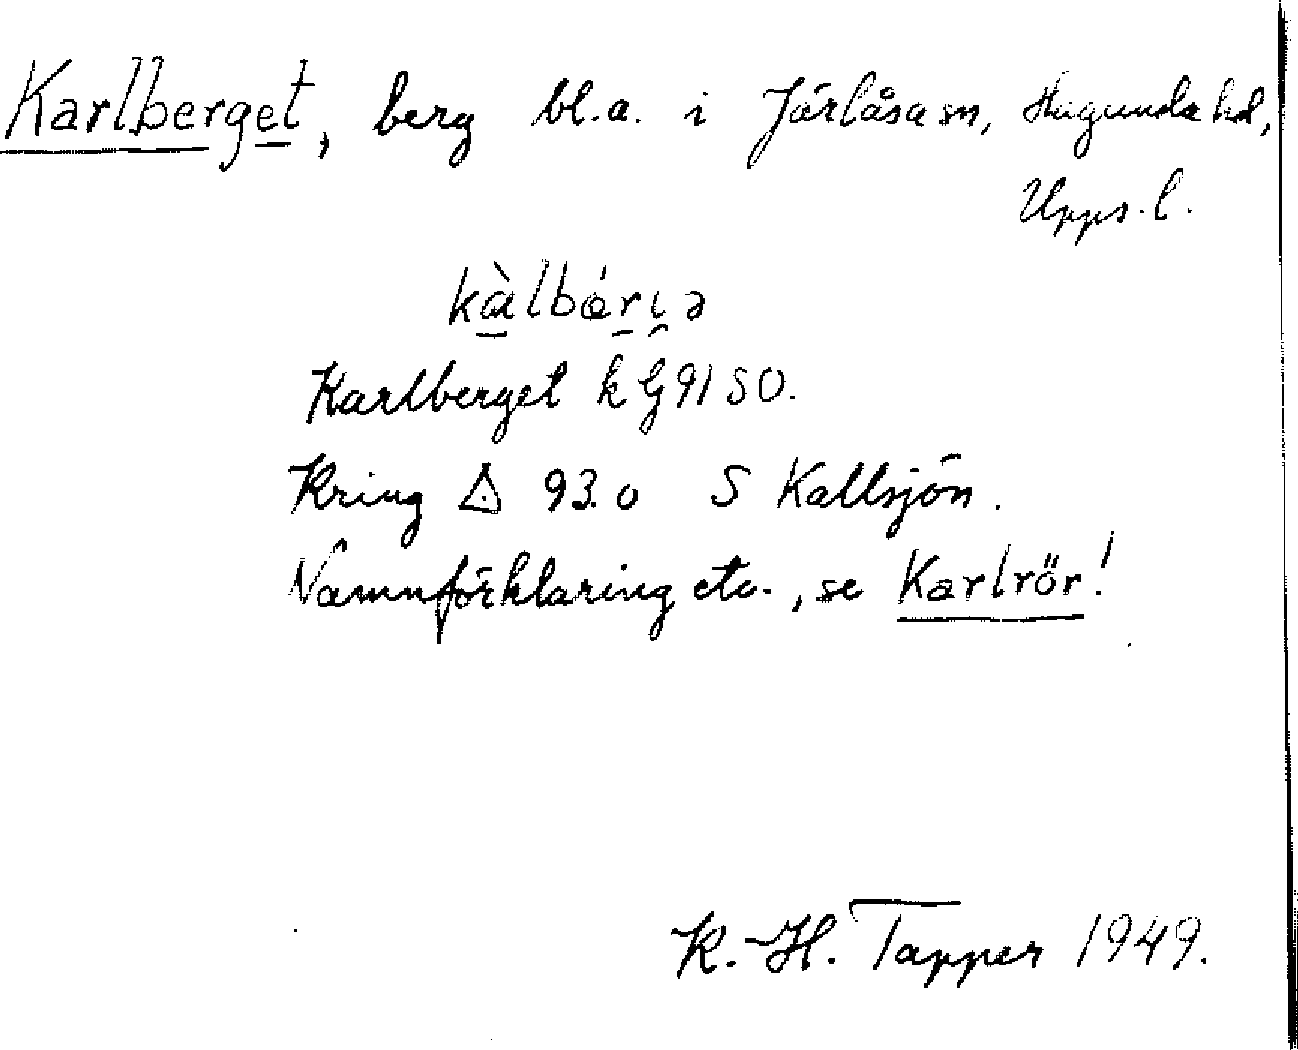 Karlberget, berg bl.a. i Järlåsa sn, Hagunda hd,
Upps. l.
kàlbærɩə
Karlberget k G 91 SO.
Kring △ 93.0 S Kallsjön.
Namnförklaring etc., se Karlrör!
K.-H. Tapper 1949.